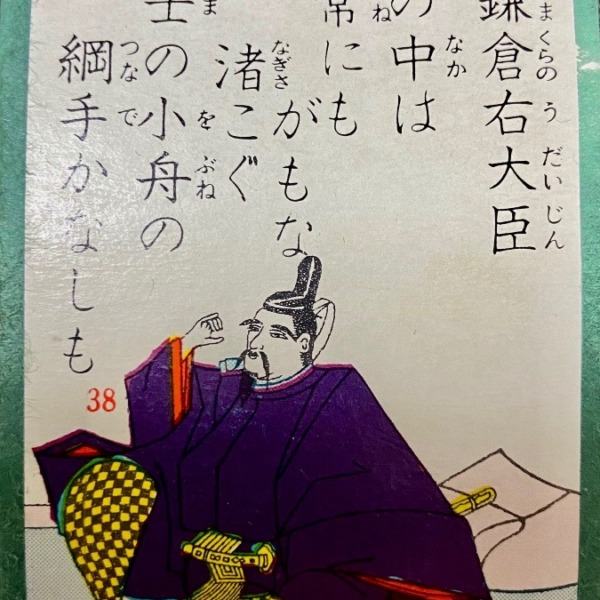 鎌倉右大臣
まくらの う だいじん
の中は
なか
常にも
ね
がもな
渚こぐ
なぎさ
士の小舟の
ま をぶね
綱手かなしも
つなで
38